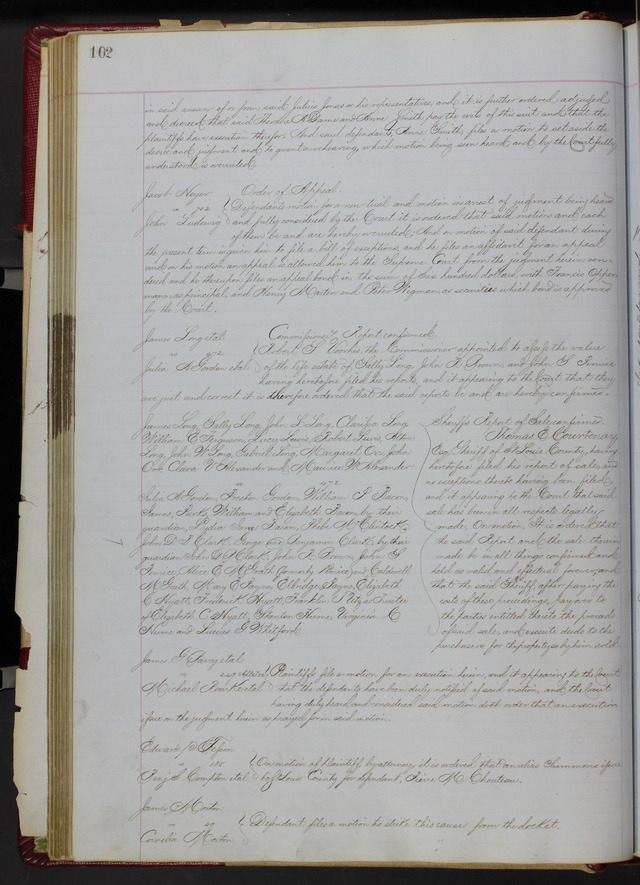 102
in said answer of or from said Julius Jones or his representatives, and it is further ordered adjudged
and decreed that said Theodore R. and Anne Smith pay the costs of this suit and that the
plaintiffs have execution therefor. And said defendant, Anne Smith, files a motion to set aside the
decree and judgment and to grant a rehearing, which motion being seen heard and by the Court fully
understood is overruled.
Jacob Hoyer Order of Appeal.
vs 702 Defendants motion for a new trial and motion in arrest of judgment being heard
John Ludewig and fully considered by the Court it is ordered that said motions and each
of them be and are hereby overruled, And on motion of said defendant during
the present term is given him to file a bill of exceptions, and he files an affidavit for an appeal
and on his motion an appeal is allowed him to the Supreme Court from the judgment herein ren-
dered and he thereupon files an appeal bond in the sum of hundred dollars, with Francis
as principal, and Henry Marten and Peter Wegman, as securities which bond is approved
by the Court.
James Long et al Commissioner's Report confirmed.
vs 272 Robert S Voorhis, the Commissioner appointed to assess the value
Julia A Gordon et al of the life estate of Sally Long, John R Brown, and John S
having heretofore filed his reports, and it appearing to the Court that they
are just and correct it is therefore ordered that the said reports be and are hereby confirmed.
James Long, Sally Long, John L Long, Clarissa Long Sheriffs Report of Sale confirmed.
William E Ferguson, Lucy Lewis, Robert Lewis, Thomas E Courtenay
Long, John W Long, Gabriel Long, Margaret Orr, John Esq Sheriff of St Louis County, having
Orr Clara V Alexander and Maurice W Alexander heretofore filed his report of sales, and
vs 272 no exceptions thereto having been filed,
Julia A Gordon, Gordon, William P and it appearing to the Court that said
James, and Elizabeth by their sale has been in all respects legally
guardian, Lydia Jane made, On motion, It is ordered that
John D F Clark, George and Benjamin Clark by their the said Report and the sale therein
guardian John D F Clark, John R Brown, John S made be in all things confirmed and
Alice E McGrath formerly and Caldwell held as valid and effectual forever, and
McGrath, Mary E Payne, Elbridge Payne, Elizabeth that the said Sheriff, after paying the
C Hyatt, Frederick Hyatt, Franklin trustee costs of these proceedings, pay over to
of Elizabeth C Hyatt, Stanton Hume, Virginia C the parties entitled thereto the proceeds
Hume and Lucius G Whitford of said sale, and execute deeds to the
purchasers for the property so by him sold.
James G Barry et al
vs Plaintiffs file a motion for an execution herein, and it appearing to the Court
Michael et al that the defendants have been duly notified of said motion, and the Court
having duly heard and considered said motion doth order that an execution
issue on the judgment herein as prayed for in said motion.
Edward
vs On motion of plaintiff, by attorney, it is ordered that an alias summons issue
Benj S Compton et al to St Louis County for defendant, Pierre M. Chouteau.
James Morton
vs Defendant files a motion to strike this cause from the docket.
Cornelia Morton